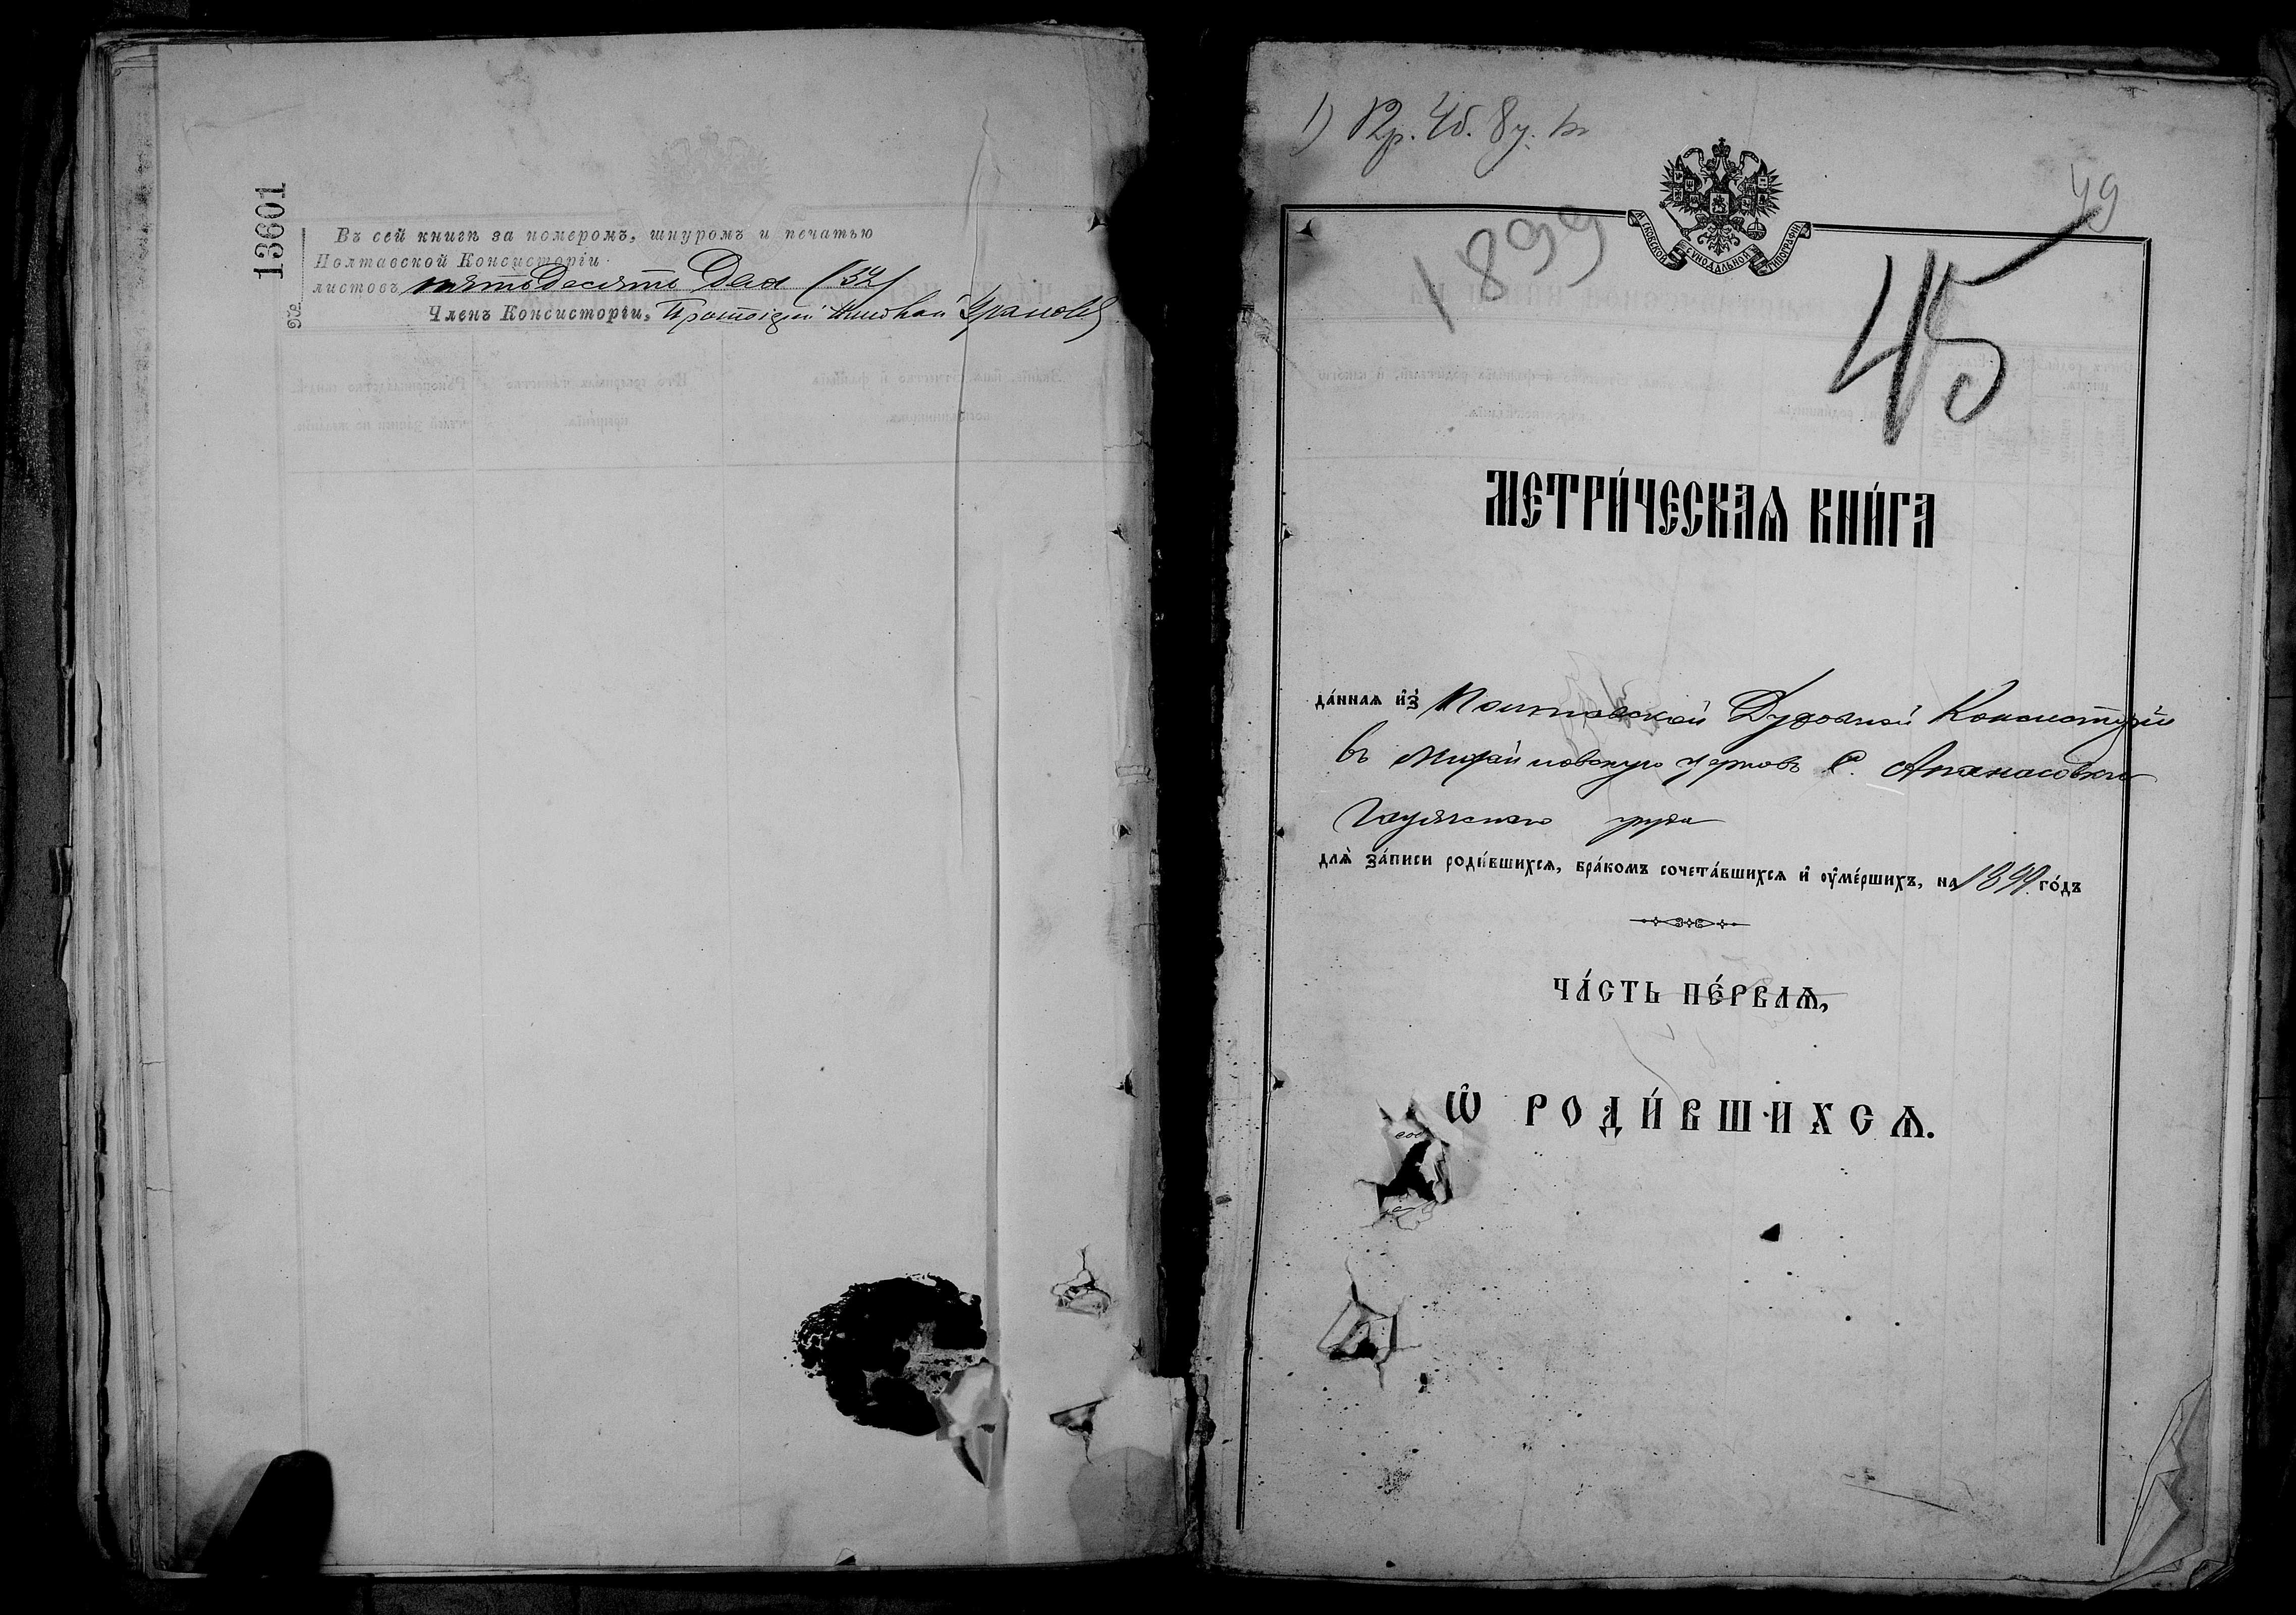 13601
Въ сей книгѣ за номеромъ, шнуромъ и печатью
Полтавской Консисторіи
листовъ пятьдесятъ два (52)
Членъ Консисторіи, Протоіерей Николай Ураловъ
1) Кр. 4б. 8у.
1899
49
45
МОСКОВСКОЙ СѴНОДАЛЬНОЙ ТИПОГРАФІИ
МЕТРИ́ЧЕСКАѦ КНИ́ГА
да́ннаѧ и҆з̾ Полтавской Духовной Консисторіи
въ Михайловскую церковь с. Апанасовки
Гадячскаго уѣзда
длѧ̀ за́писи роди́вшихсѧ, бра́комъ сочета́вшихсѧ и҆ ᲂу҆ме́ршихъ, на 1899 го́дъ
ЧА́СТЬ ПЕ́РВАѦ,
Ѽ РОДИ́ВШИХСѦ.